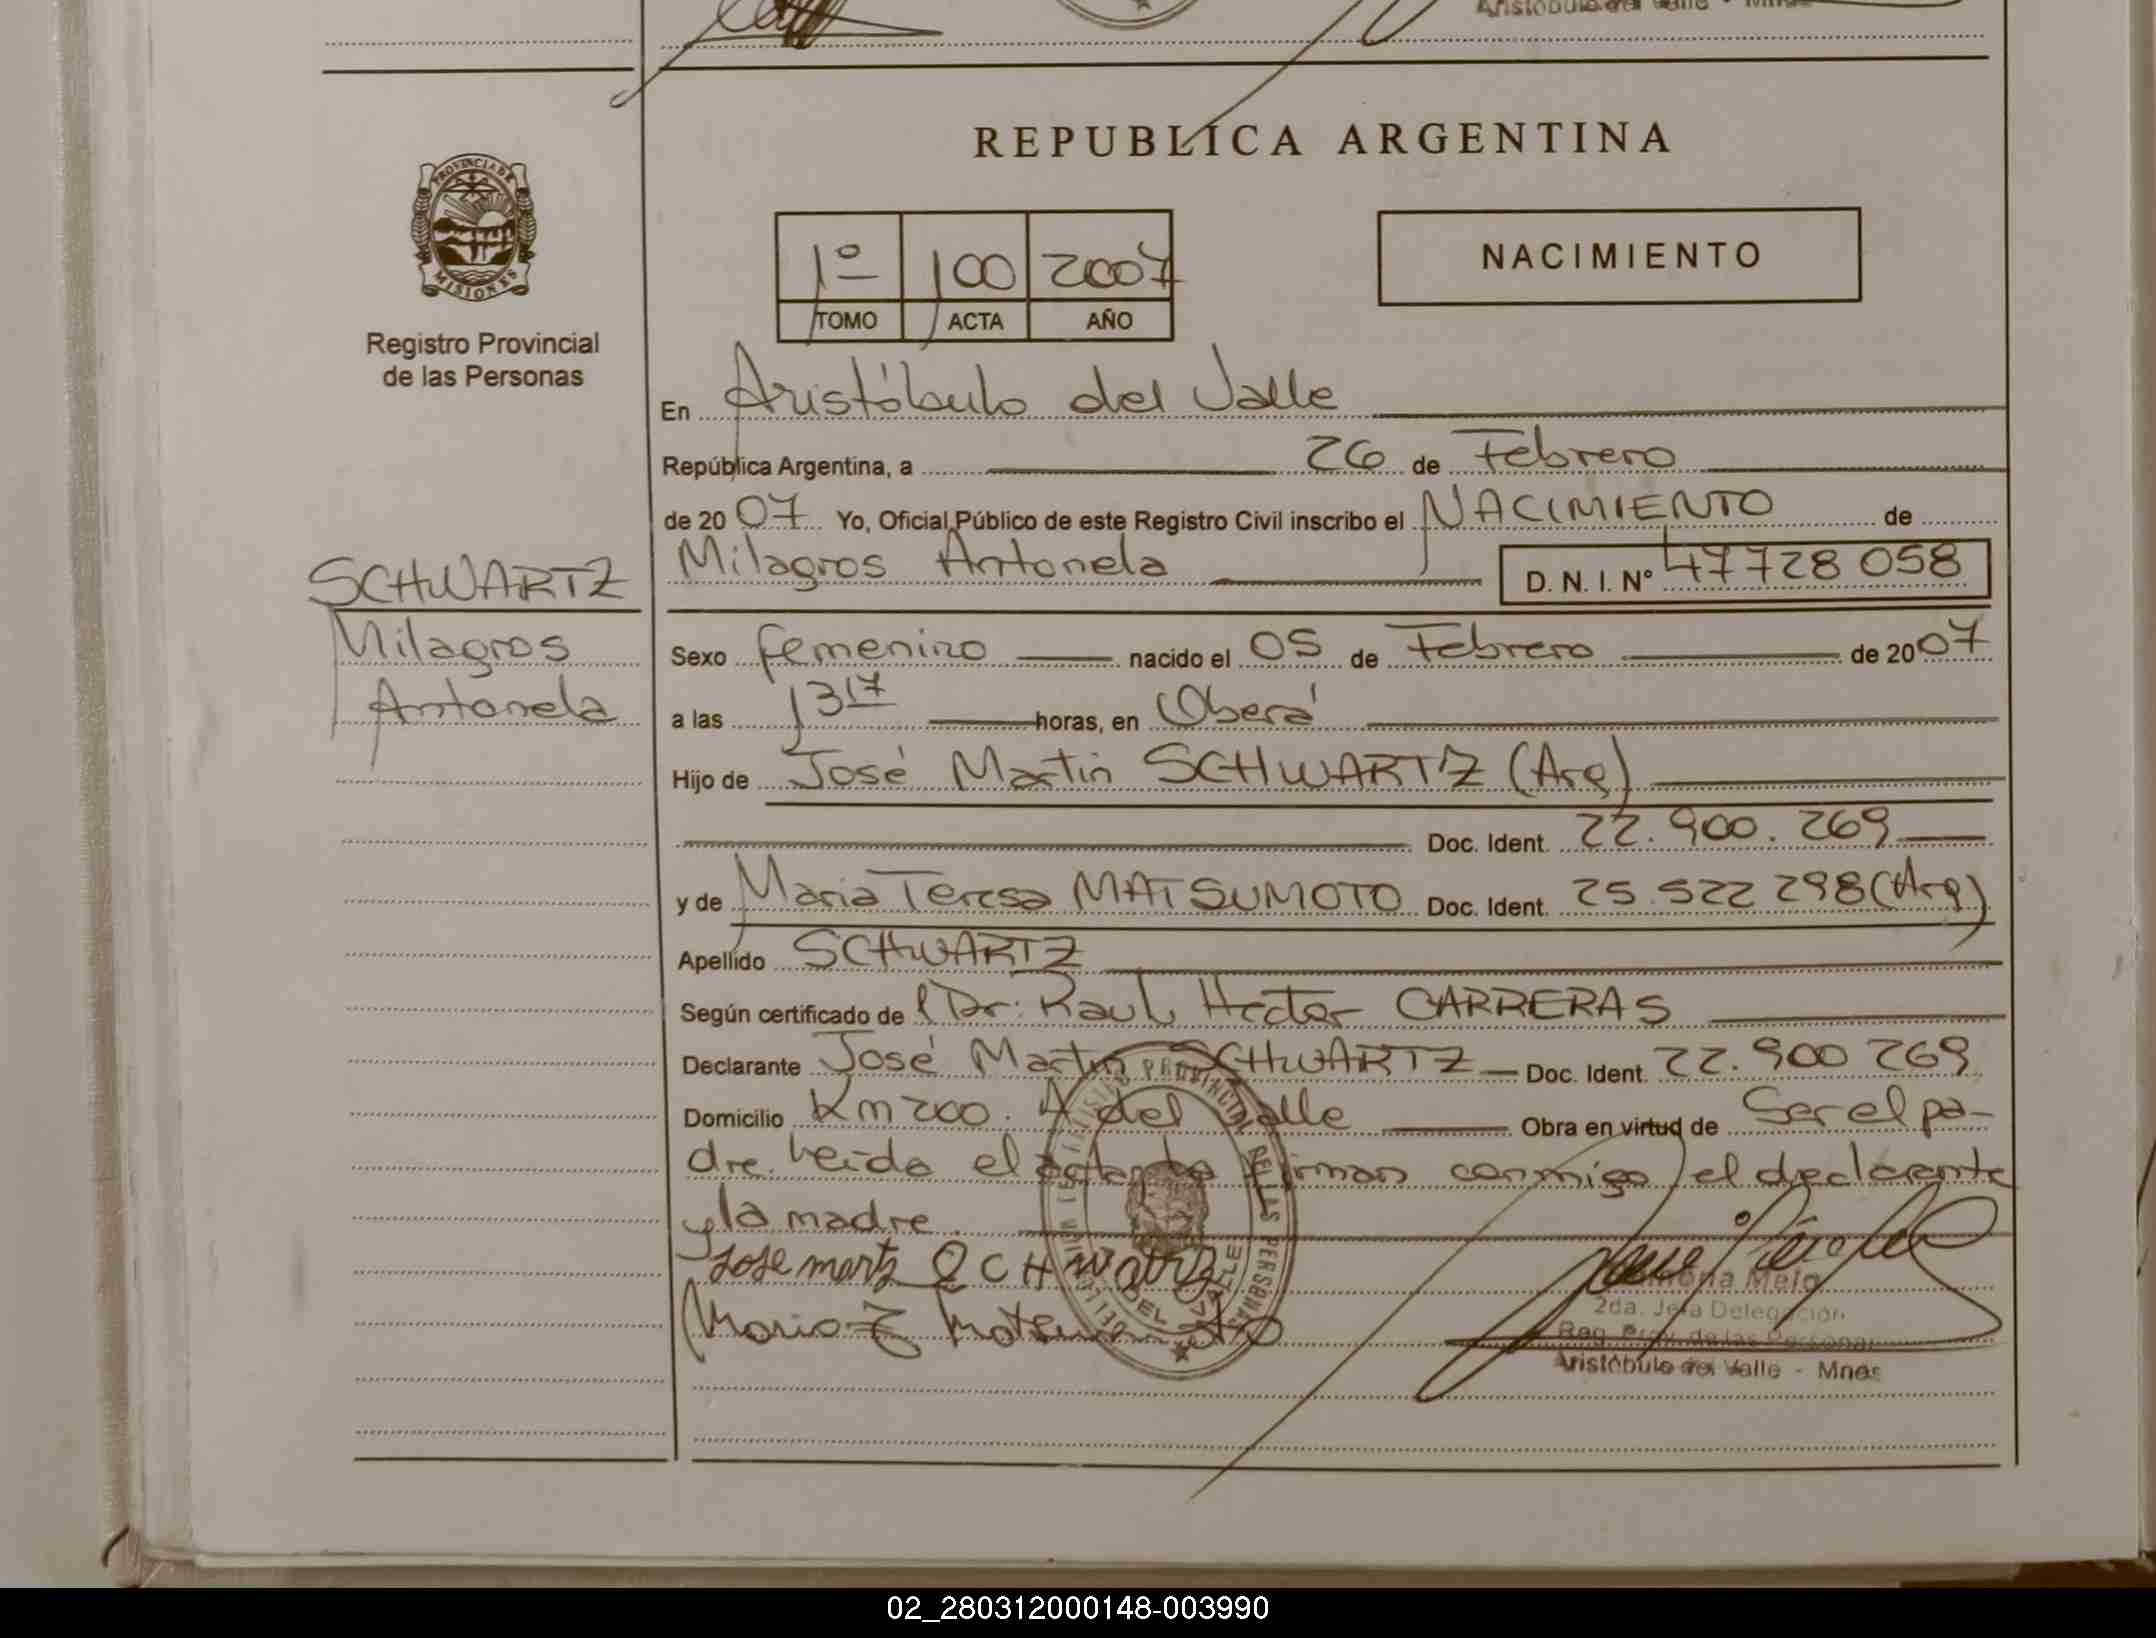 Aristóbulo del Valle - Mnes
REPUBLICA ARGENTINA
PROVINCIA DE
MISIONES
1º 100 2007
TOMO ACTA AÑO
NACIMIENTO
Registro Provincial
de las Personas
En Aristóbulo del Valle
República Argentina, a 26 de Febrero
de 2007 Yo, Oficial Público de este Registro Civil inscribo el NACIMIENTO de
SCHWARTZ
Milagros
Antonela
Milagros Antonela D. N. I. Nº 47728 058
Sexo femenino nacido el 05 de Febrero de 2007
a las 13 17 horas, en Oberá
Hijo de José Martin SCHWARTZ (Arg)
Doc. Ident. 22.900.269
y de Maria Teresa MATSUMOTO Doc. Ident. 25.522 298 (Arg)
Apellido SCHWARTZ
Según certificado de l Dr: Raul Hector CARRERAS
Declarante José Martin SCHWARTZ Doc. Ident. 22.900 269
Domicilio Km 200. A del Valle Obra en virtud de Ser el pa-
dre. Leida el acta firman conmigo el declarante
y la madre.
Jose martin SCHwartz
Maria T Matsumoto
Ramona Melo
2da. Jefa Delegación
Reg. Prov. de las Personas
Aristóbulo del Valle - Mnes
02_280312000148-003990